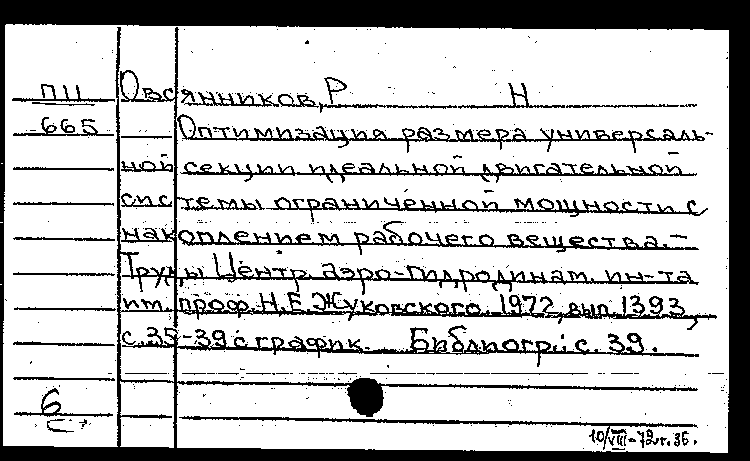 П11 Овсянников, Р Н
665 Оптимизация размера универсаль-
ной секции идеальной двигательной
системы ограниченной мощности с
накоплением рабочего вещества. –
Труды Центр. аэро-гидродинам. ин-та
им. проф. Н.Е. Жуковского. 1972, вып. 1393,
с. 35-39 с график. Библиогр.: с. 39.
6